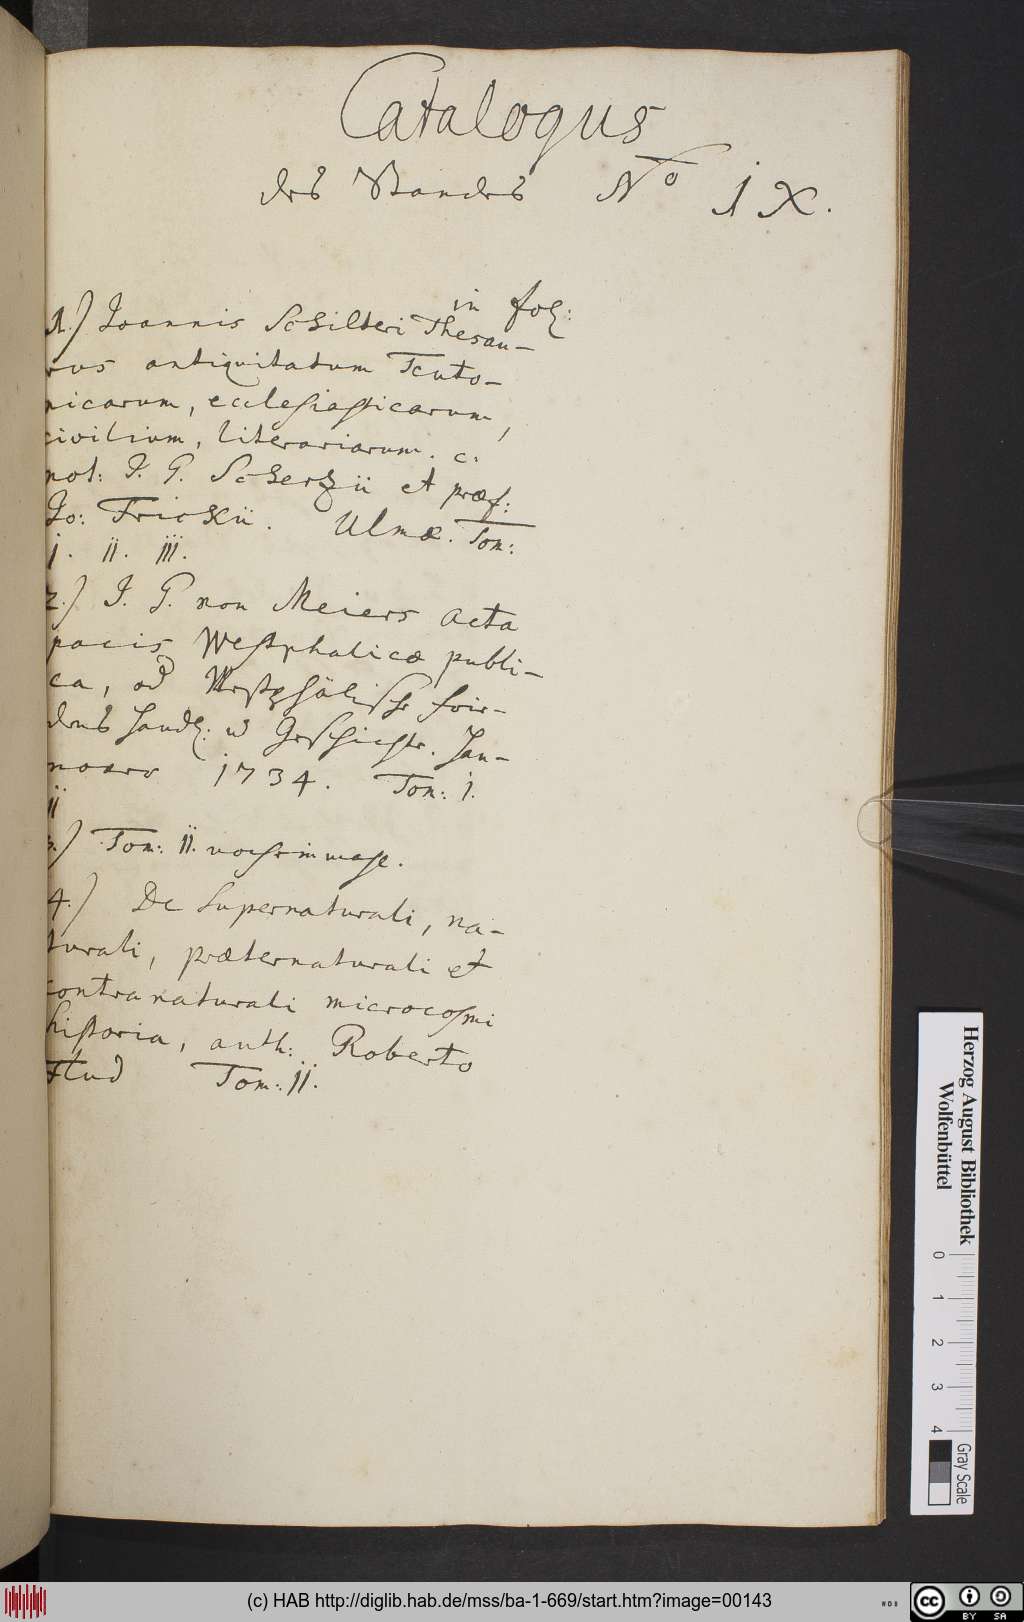 Catalogus
des Standes No IX.
in fol:
1.) Joannis Schilteri Thesau-
rus antiquitatum Teuto-
nicarum, ecclesiasticarum,
civilium, literariarum. c.
not: J. G. Scherzii et præf:
Jo: Frickii. Ulmæ. Tom:
I. II. III.
2.) J. G. von Meiers acta
pacis Westphalicæ publi-
ca, od Westphälische frie-
dens handl: u Geschichte. Han-
nover 1734. Tom: I.
II
3.) Tom: II.
4.) De supernaturali, na-
turali, præternaturali et
contranaturali microcosmi
historia, auth: Roberto
Flud Tom: II.
Herzog August Bibliothek
Wolfenbüttel
0 1 2 3 4
Gray Scale
(c) HAB http://diglib.hab.de/mss/ba-1-669/start.htm?image=00143
cc BY SA